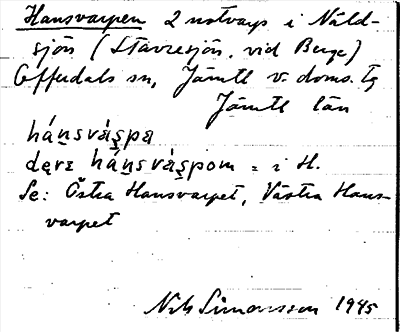 Hansvarpen 2 notvarp i Näld-
sjön (Stavresjön, vid Berge)
Offerdals sn, Jämtl v. doms. tg
Jämtl län
há̱nsvàs̱pa
dęrɛ há̱nsvàs̱pom = i H.
Se: Östra Hansvarpet, Västra Hans-
varpet
Nils Simonsson 1945